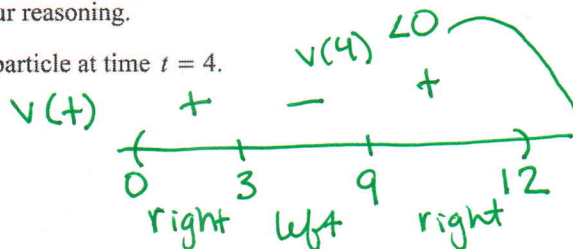 ur reasoning.
particle at time t = 4.
v(4) <0
v(t) + − +
0 3 9 12
right left right